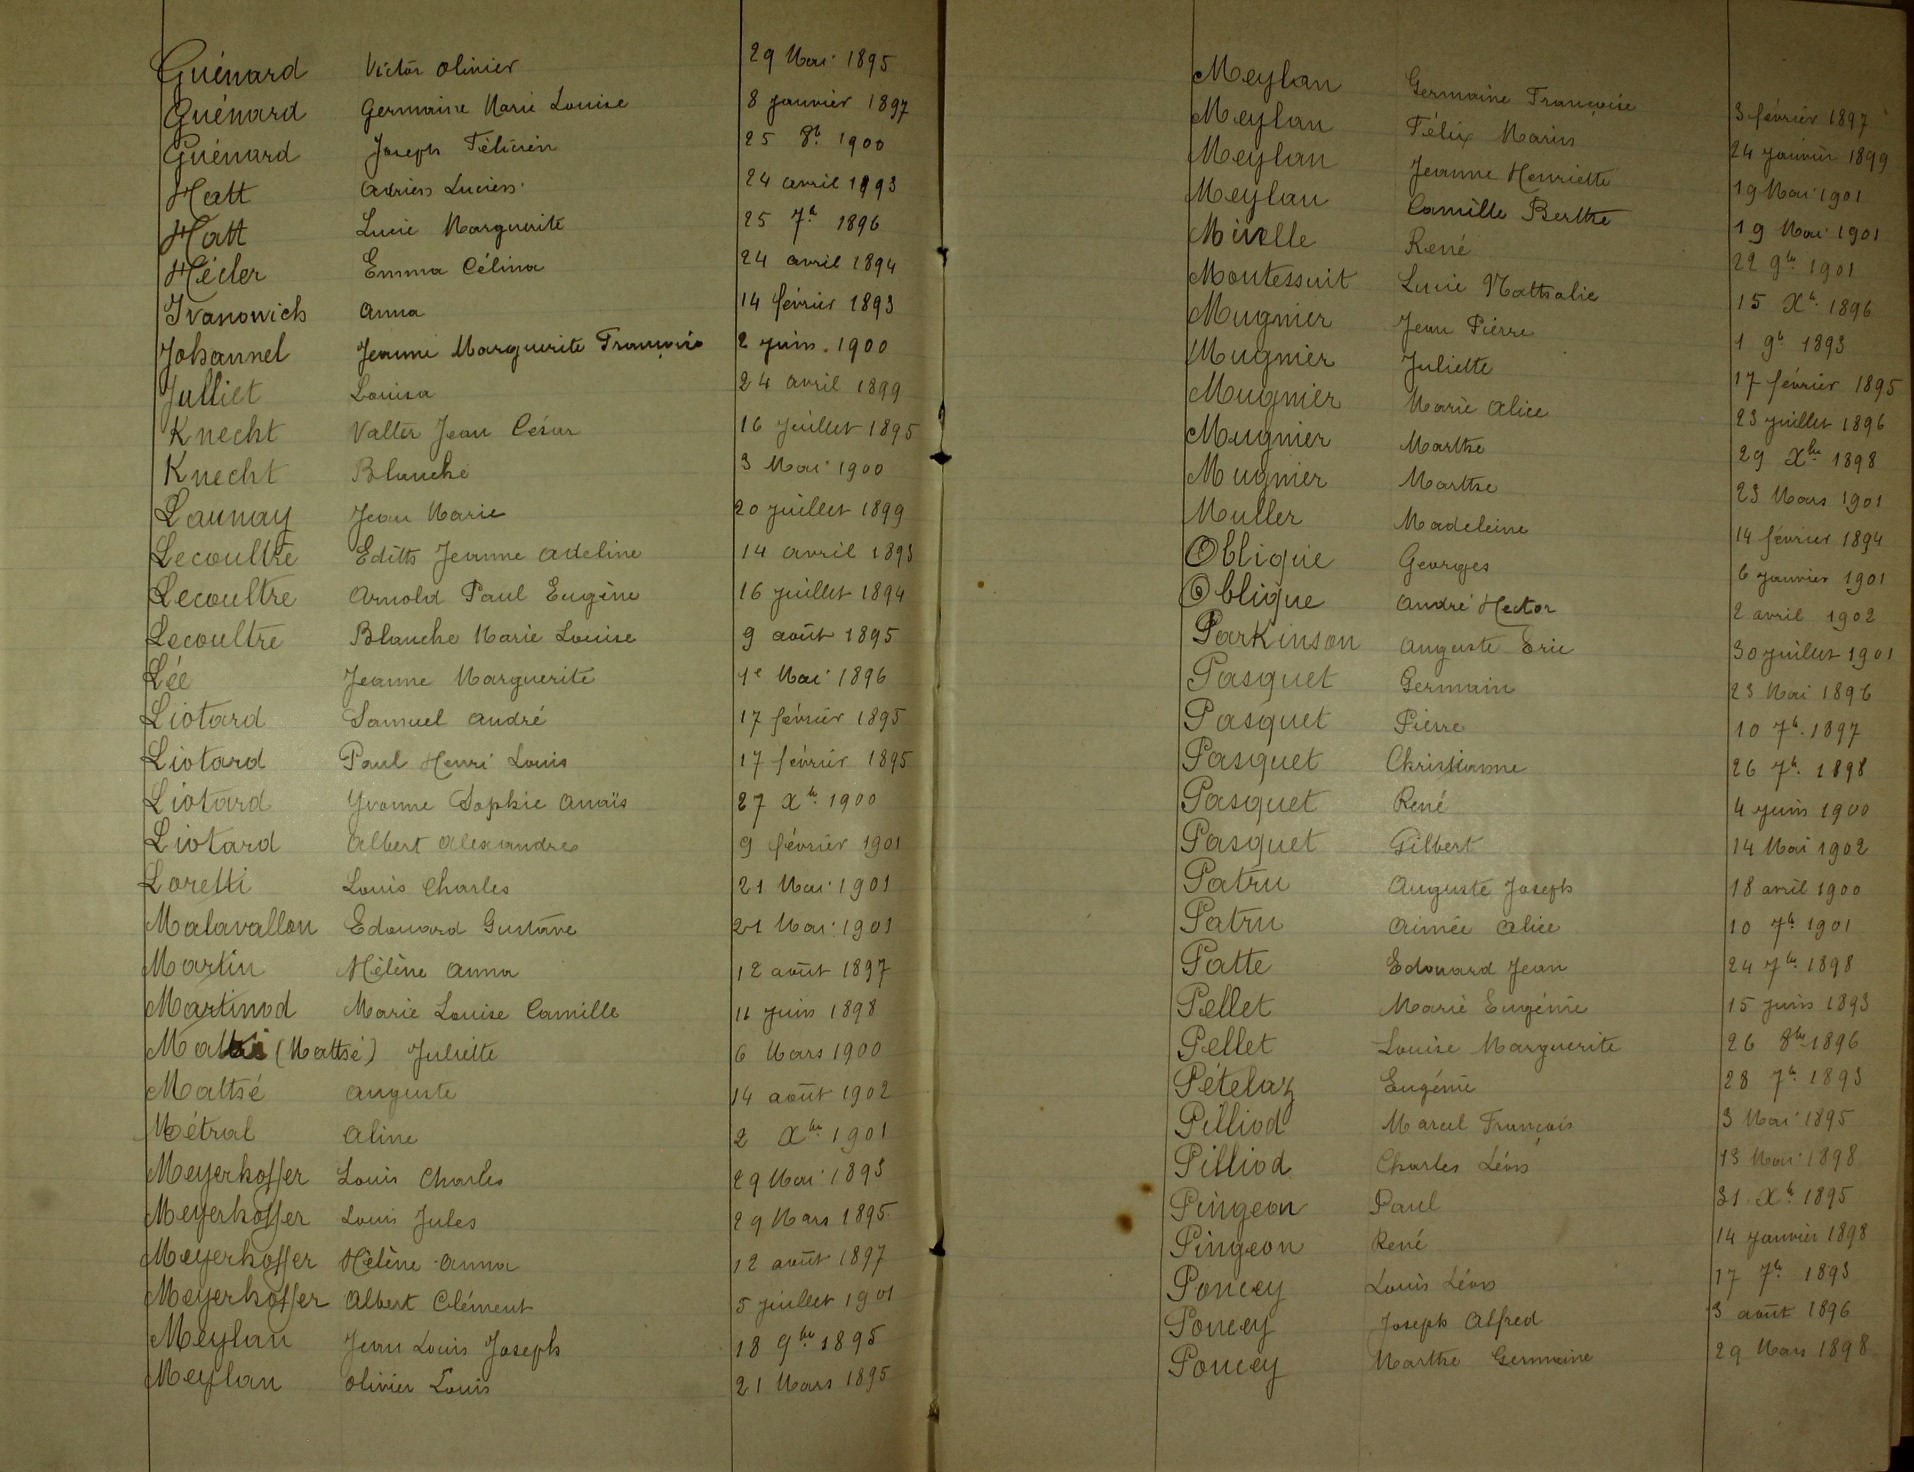 Guénard Victor Olivier 29 Mai 1895
Guénard Germaine Marie Louise 8 janvier 1897
Guénard Joseph Félicien 25 8b. 1900
Hatt Adrien Lucien 24 avril 1893
Hatt Lucie Marguerite 25 7b 1896
Hécler Emma Célina 24 avril 1894
Ivanowich Anna 14 février 1893
Johannel Jeanne Marguerite Françoise 2 juin 1900
Julliet Louisa 24 avril 1899
Knecht Valter Jean César 16 juillet 1895
Knecht Blanche 3 Mai 1900
Launay Jean Marie 20 juillet 1899
Lecoultre Edith Jeanne Adeline 14 avril 1893
Lecoultre Arnold Paul Eugène 16 juillet 1894
Lecoultre Blanche Marie Louise 9 août 1895
Lée Jeanne Marguerite 1e Mai 1896
Liotard Samuel André 17 février 1895
Liotard Paul Henri Louis 17 février 1895
Liotard Yvonne Sophie Anaïs 27 Xb. 1900
Liotard Albert Alexandre 9 février 1901
Loretti Louis Charles 21 Mai 1901
Malavallon Edouard Gustave 21 Mai 1901
Martin Hélène Anna 12 août 1897
Martinod Marie Louise Camille 11 juin 1898
(Matthé) Juliette 6 Mars 1900
Matthé Auguste 14 août 1902
Métral Aline 2 Xbre 1901
Meyerhoffer Louis Charles 29 Mai 1893
Meyerhoffer Louis Jules 29 Mars 1895
Meyerhoffer Hélène Anna 12 août 1897
Meyerhoffer Albert Clément 5 juillet 1901
Meylan Jean Louis Joseph 18 9bre 1895
Meylan Olivier Louis 21 Mars 1895
Meylan Germaine Françoise 3 février 1897
Meylan Félix Marius 24 janvier 1899
Meylan Jeanne Henriette 19 Mai 1901
Meylan Camille Berthe 19 Mai 1901
Mivelle René 22 9bre 1901
Montessuit Lucie Nathalie 15 Xb. 1896
Mugnier Jean Pierre 1 9b 1893
Mugnier Juliette 17 février 1895
Mugnier Marie Alice 23 juillet 1896
Mugnier Marthe 29 Xbre 1898
Mugnier Marthe 23 Mars 1901
Muller Madeleine 14 février 1894
Obligue Georges 6 janvier 1901
Obligue André Hector 2 avril 1902
Parkinson Auguste Eric 30 juillet 1901
Pasquet Germain 23 Mai 1896
Pasquet Pierre 10 7b. 1897
Pasquet Christianne 26 7b. 1898
Pasquet René 4 juin 1900
Pasquet Gilbert 14 Mai 1902
Patru Auguste Joseph 18 avril 1900
Patru Aimée Alice 10 7b 1901
Patte Edouard Jean 24 7bre 1898
Pellet Marie Eugénie 15 juin 1893
Pellet Louise Marguerite 26 8bre 1896
Pételaz Eugénie 28 7b. 1893
Pilliod Marcel François 3 Mai 1895
Pilliod Charles Léon 13 Mai 1898
Pingeon Paul 31 Xb 1895
Pingeon René 14 janvier 1898
Poncey Louis Léon 17 7b. 1893
Poncey Joseph Alfred 3 août 1896
Poncey Marthe Germaine 29 Mars 1898